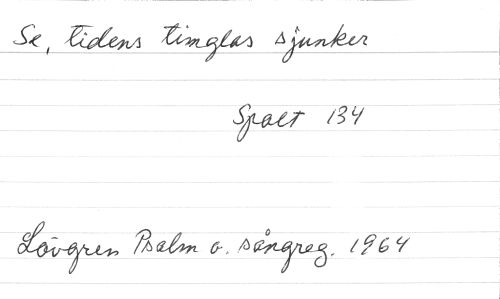 Se, tidens timglas sjunker
Spalt 134
Lövgren Psalm o. sångreg. 1964